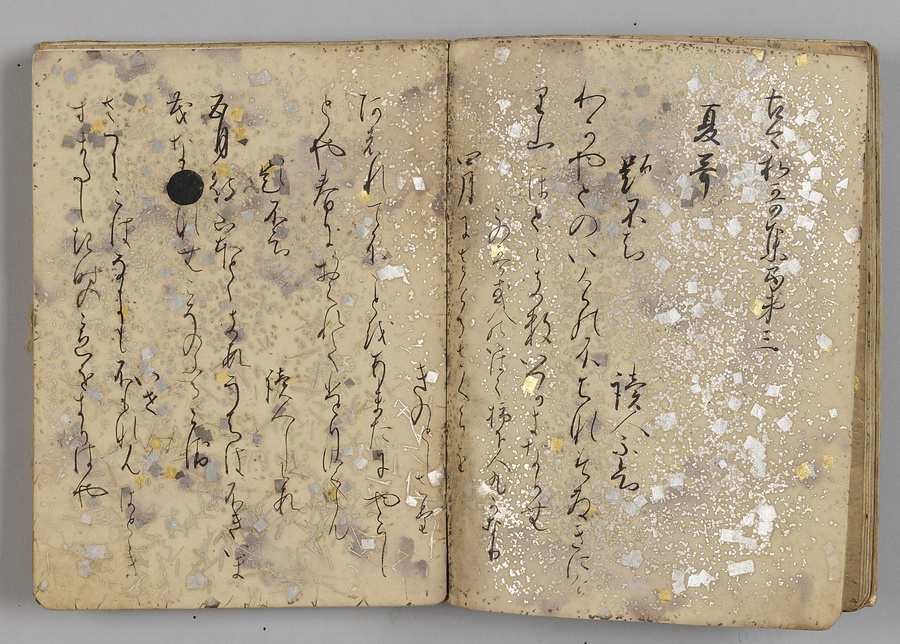 古今和歌集巻第三
夏哥
題不知 讀人不知
わかやとのいけの不ちなみさきにけり
山ほとゝきす
この哥或人のいはく柿本人丸
四月にさけるさくらを
きのとしさた
あはれてふことをあまたにやらし
とや春におくれてひとりさくらん
題不知 讀人しらす
五月待山ほとゝきすうちはふきいま
茂な なむこそのふるこゑ
いせ
さつきこはなきもふりなんほとゝき
すまたしきほとのこゑをきかはや